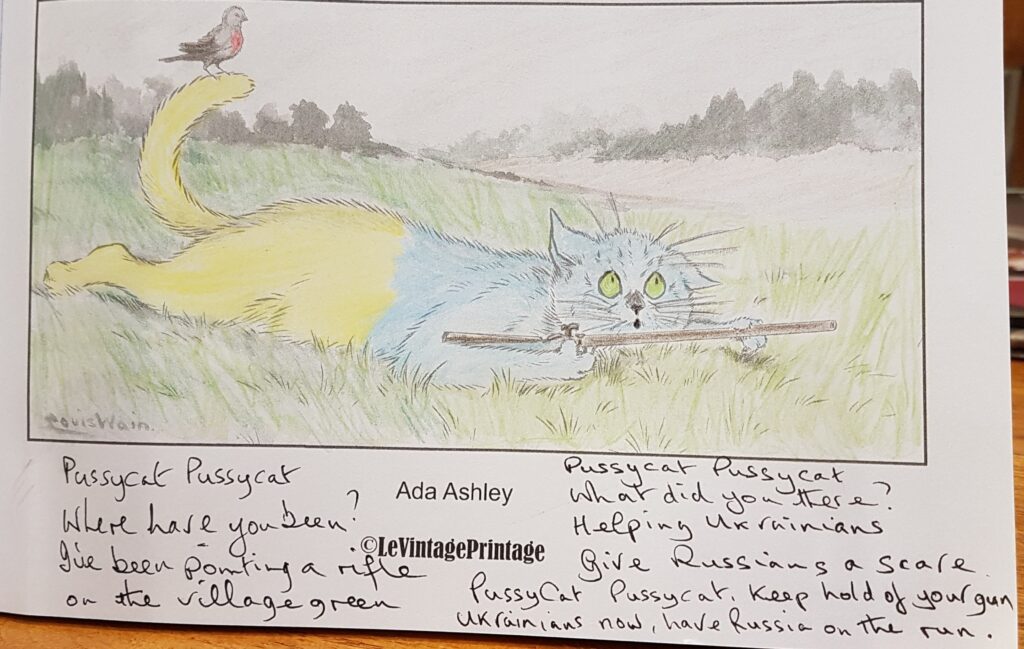 Louis Wain.
Pussycat Pussycat
Where have you been?
I've been pointing a rifle
on the village green
Ada Ashley
©LeVintagePrintage
Pussycat Pussycat
What did you there?
Helping Ukrainians
Give Russians a scare.
PussyCat Pussycat. Keep hold of your gun
Ukrainians now, have Russia on the run.